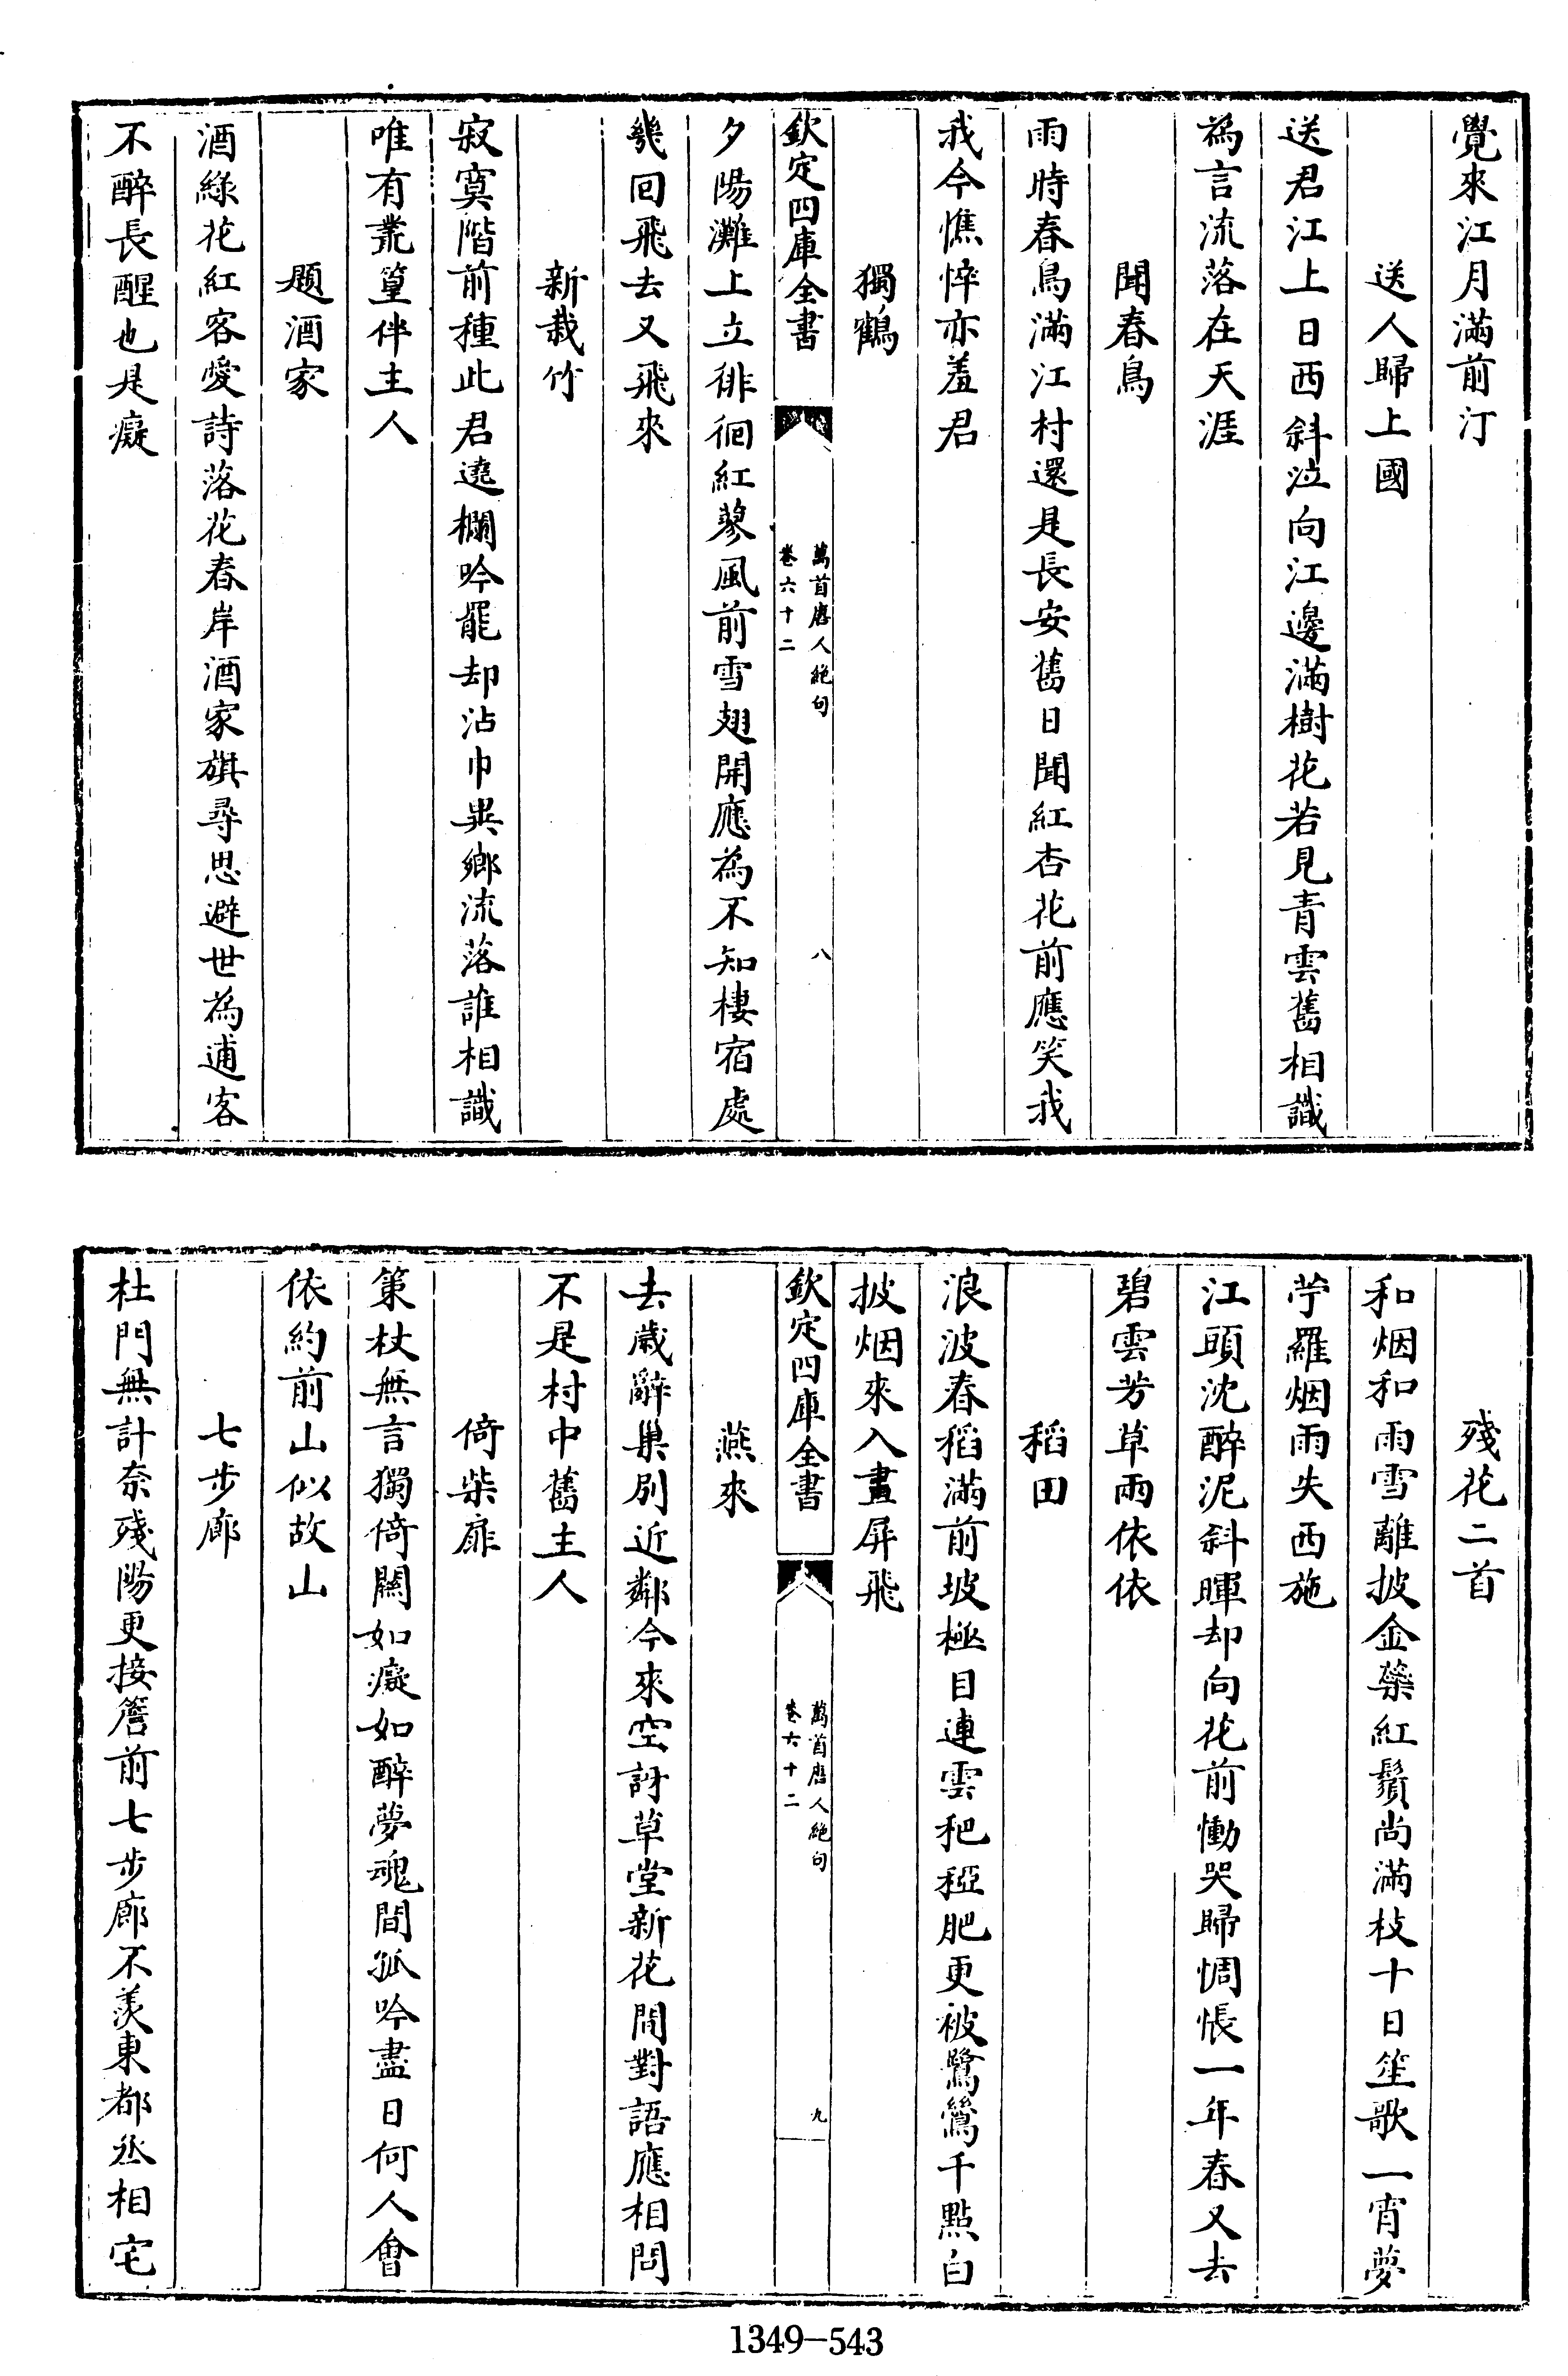 覺來江月滿前汀
送人歸上國
送君江上日西斜泣向江邊滿樹花若見青雲舊相識
為言流落在天涯
聞春鳥
雨時春鳥滿江村還是長安舊日聞紅杏花前應笑我
我今憔悴亦羞君
獨鶴
欽定四庫全書
萬首唐人絶句
卷六十二
八
夕陽灘上立徘徊紅蓼風前雪翅開應為不知棲宿處
幾回飛去又飛來
新栽竹
寂寞階前種此君遶欄吟罷却沾巾異鄉流落誰相識
唯有叢篁伴主人
題酒家
酒綠花紅客愛詩落花春岸酒家旗尋思避世為逋客
不醉長醒也是癡
殘花二首
和烟和雨雪離披金蘂紅鬚尚滿枝十日笙歌一宵夢
苧羅烟雨失西施
江頭沈醉泥斜暉却向花前慟哭歸惆悵一年春又去
碧雲芳草兩依依
稻田
浪波春稻滿前坡極目連雲䆉稏肥更被鷺鷥千點白
披烟來入畫屏飛
欽定四庫全書
萬首唐人絶句
卷六十二
九
燕來
去歲辭巢別近鄰今來空訝草堂新花間對語應相問
不是村中舊主人
倚柴扉
策杖無言獨倚關如癡如醉夢魂間孤吟盡日何人會
依約前山似故山
七步廊
杜門無計奈殘陽更接簷前七步廊不羨東都丞相宅
1349-543